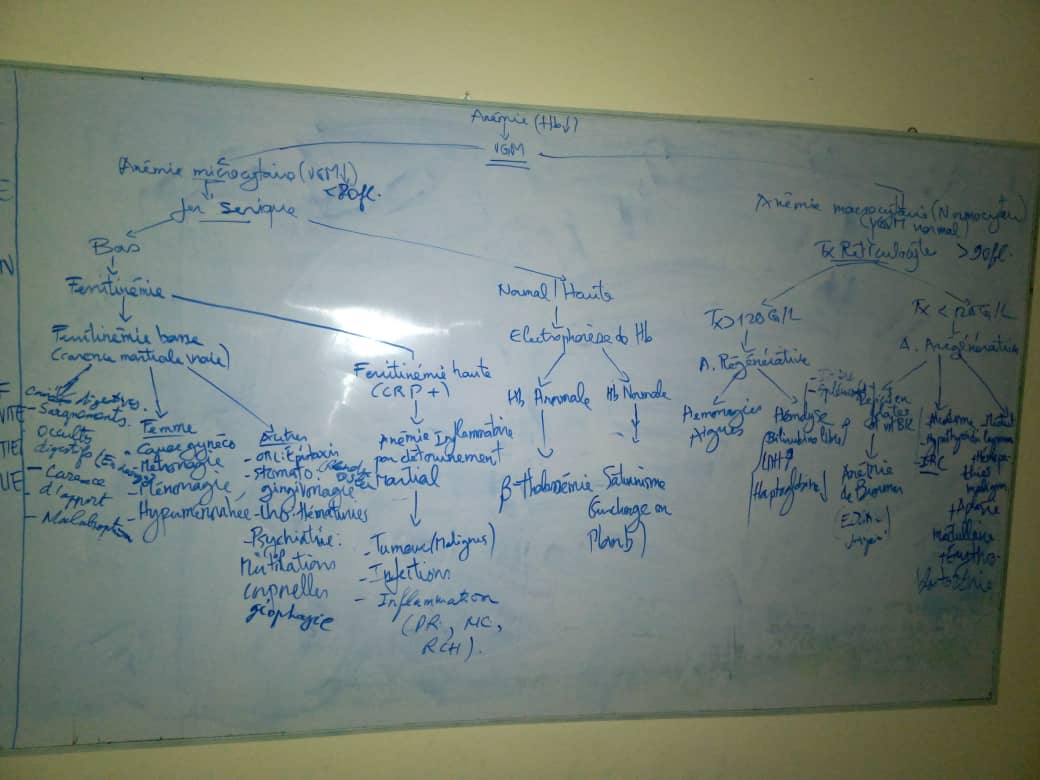 Anémie (Hb↓)
VGM
Anémie microcytaire (VGM↓)
<80fl.
Fer Serique
Bas
Ferritinémie
Ferritinémie basse
(carence martiale vraie)
Digestives.
- Saignements
occults
digestifs
- Carence
d'apport
- Malabsorption
Femme
- Cause gynéco
- Métrorragie
- Ménorragie,
- Hyperménorrhée
Autres
- ORL: Epistaxis
- stomato.
gingivorragie
- Uro: Hématuries
- Psychiatrie:
Mutilations
corporelles
géophagie
Ferritinémie haute
(CRP +)
Anémie Inflammatoire
par détournement
Martial
- Tumeur (Malignes)
- Infections
- Inflammation
(PR, MC,
RCH).
Normal / Haute
Electrophorèse de Hb
Hb Anormale
Hb Normale
β-Thalassémie
Saturnisme
Surcharge en
Plomb)
Anémie macrocytaire (Normocytaire)
(VGM normal)
Tx Réticulocytes >90fl.
Tx>120G/L
A. Régénérative
Hemorragies
Aigues
Hémolyse
Bilirubine libre
LDH
Haptoglobine
Tx < 120G/L
A. Arégénérative
Anémie
de Biermer
- Hypothyroïdie
- IRC
+ Aplasie
médullaire
+ Erythro-
blastopénie